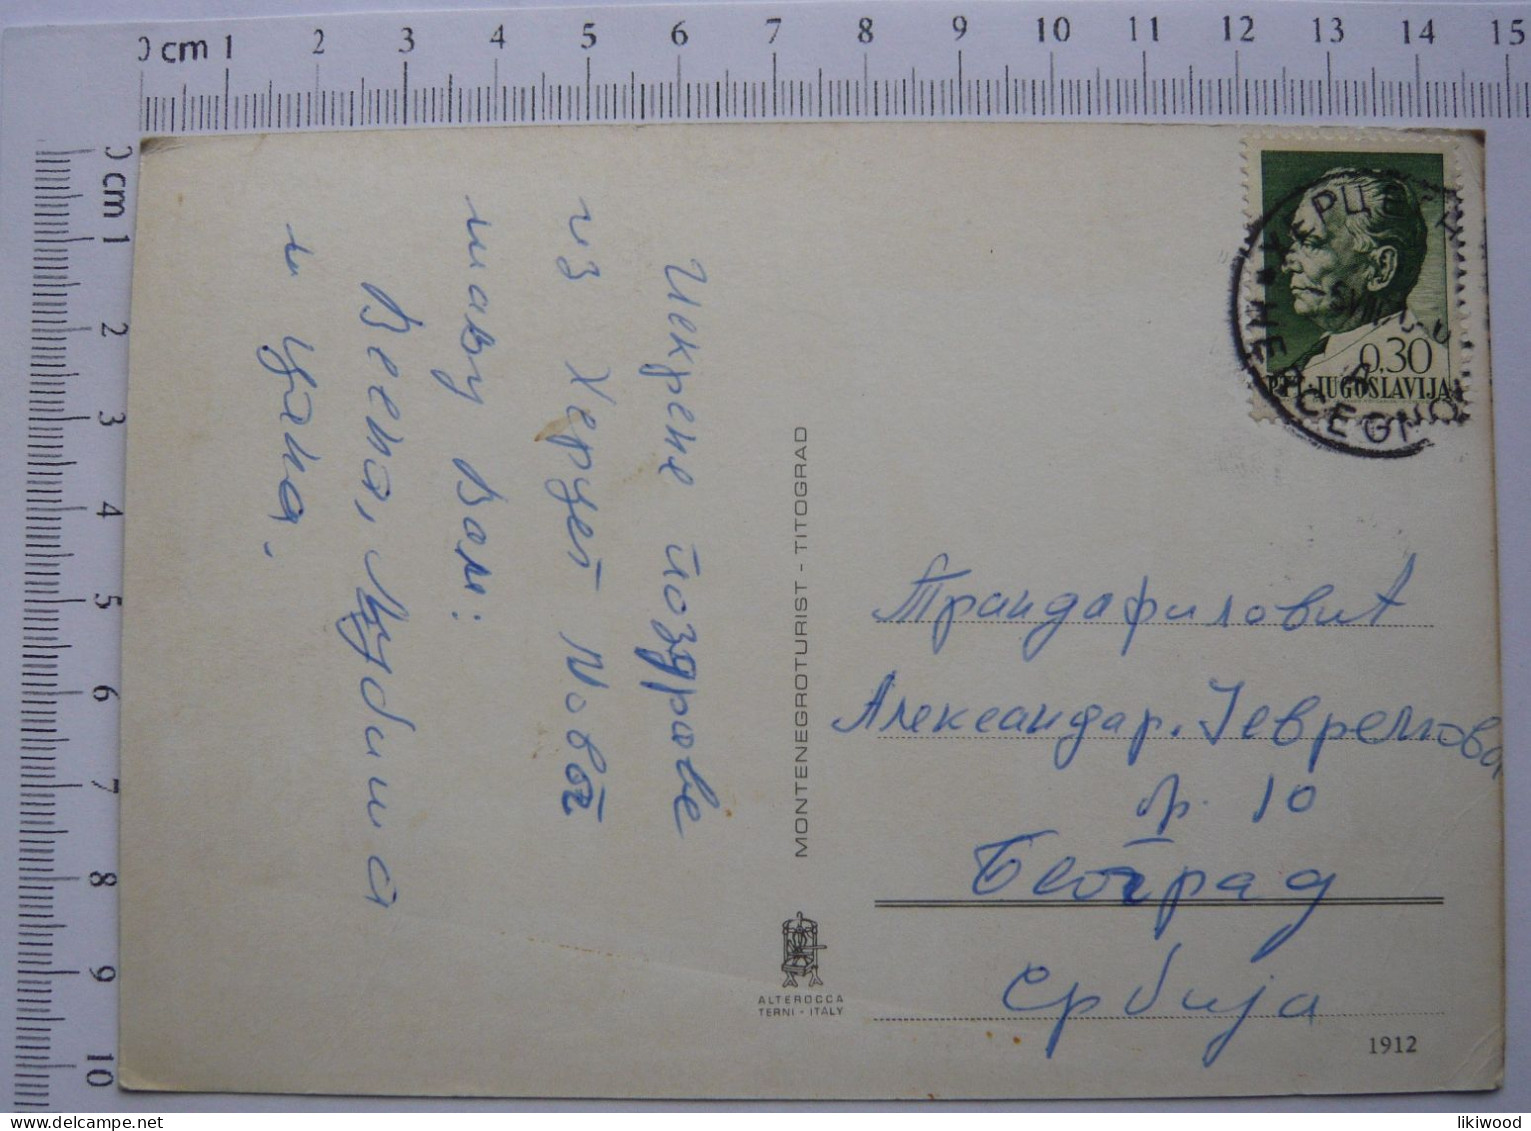 0 cm 1 2 3 4 5 6 7 8 9 10 11 12 13 14 15
0 cm 1 2 3 4 5 6 7 8 9 10
Искрене поздраве
из Херцег Новог
шаљу Вам:
Весна, Љубиша
и Цана.
MONTENEGROTURIST - TITOGRAD
ALTEROCCA
TERNI - ITALY
ХЕРЦЕГ
HERCEGNOVI
0.30
PTT-JUGOSLAVIJA
Трандафиловић
Александар. Јевремова
бр. 10
Београд
Србија
1912
likiwood